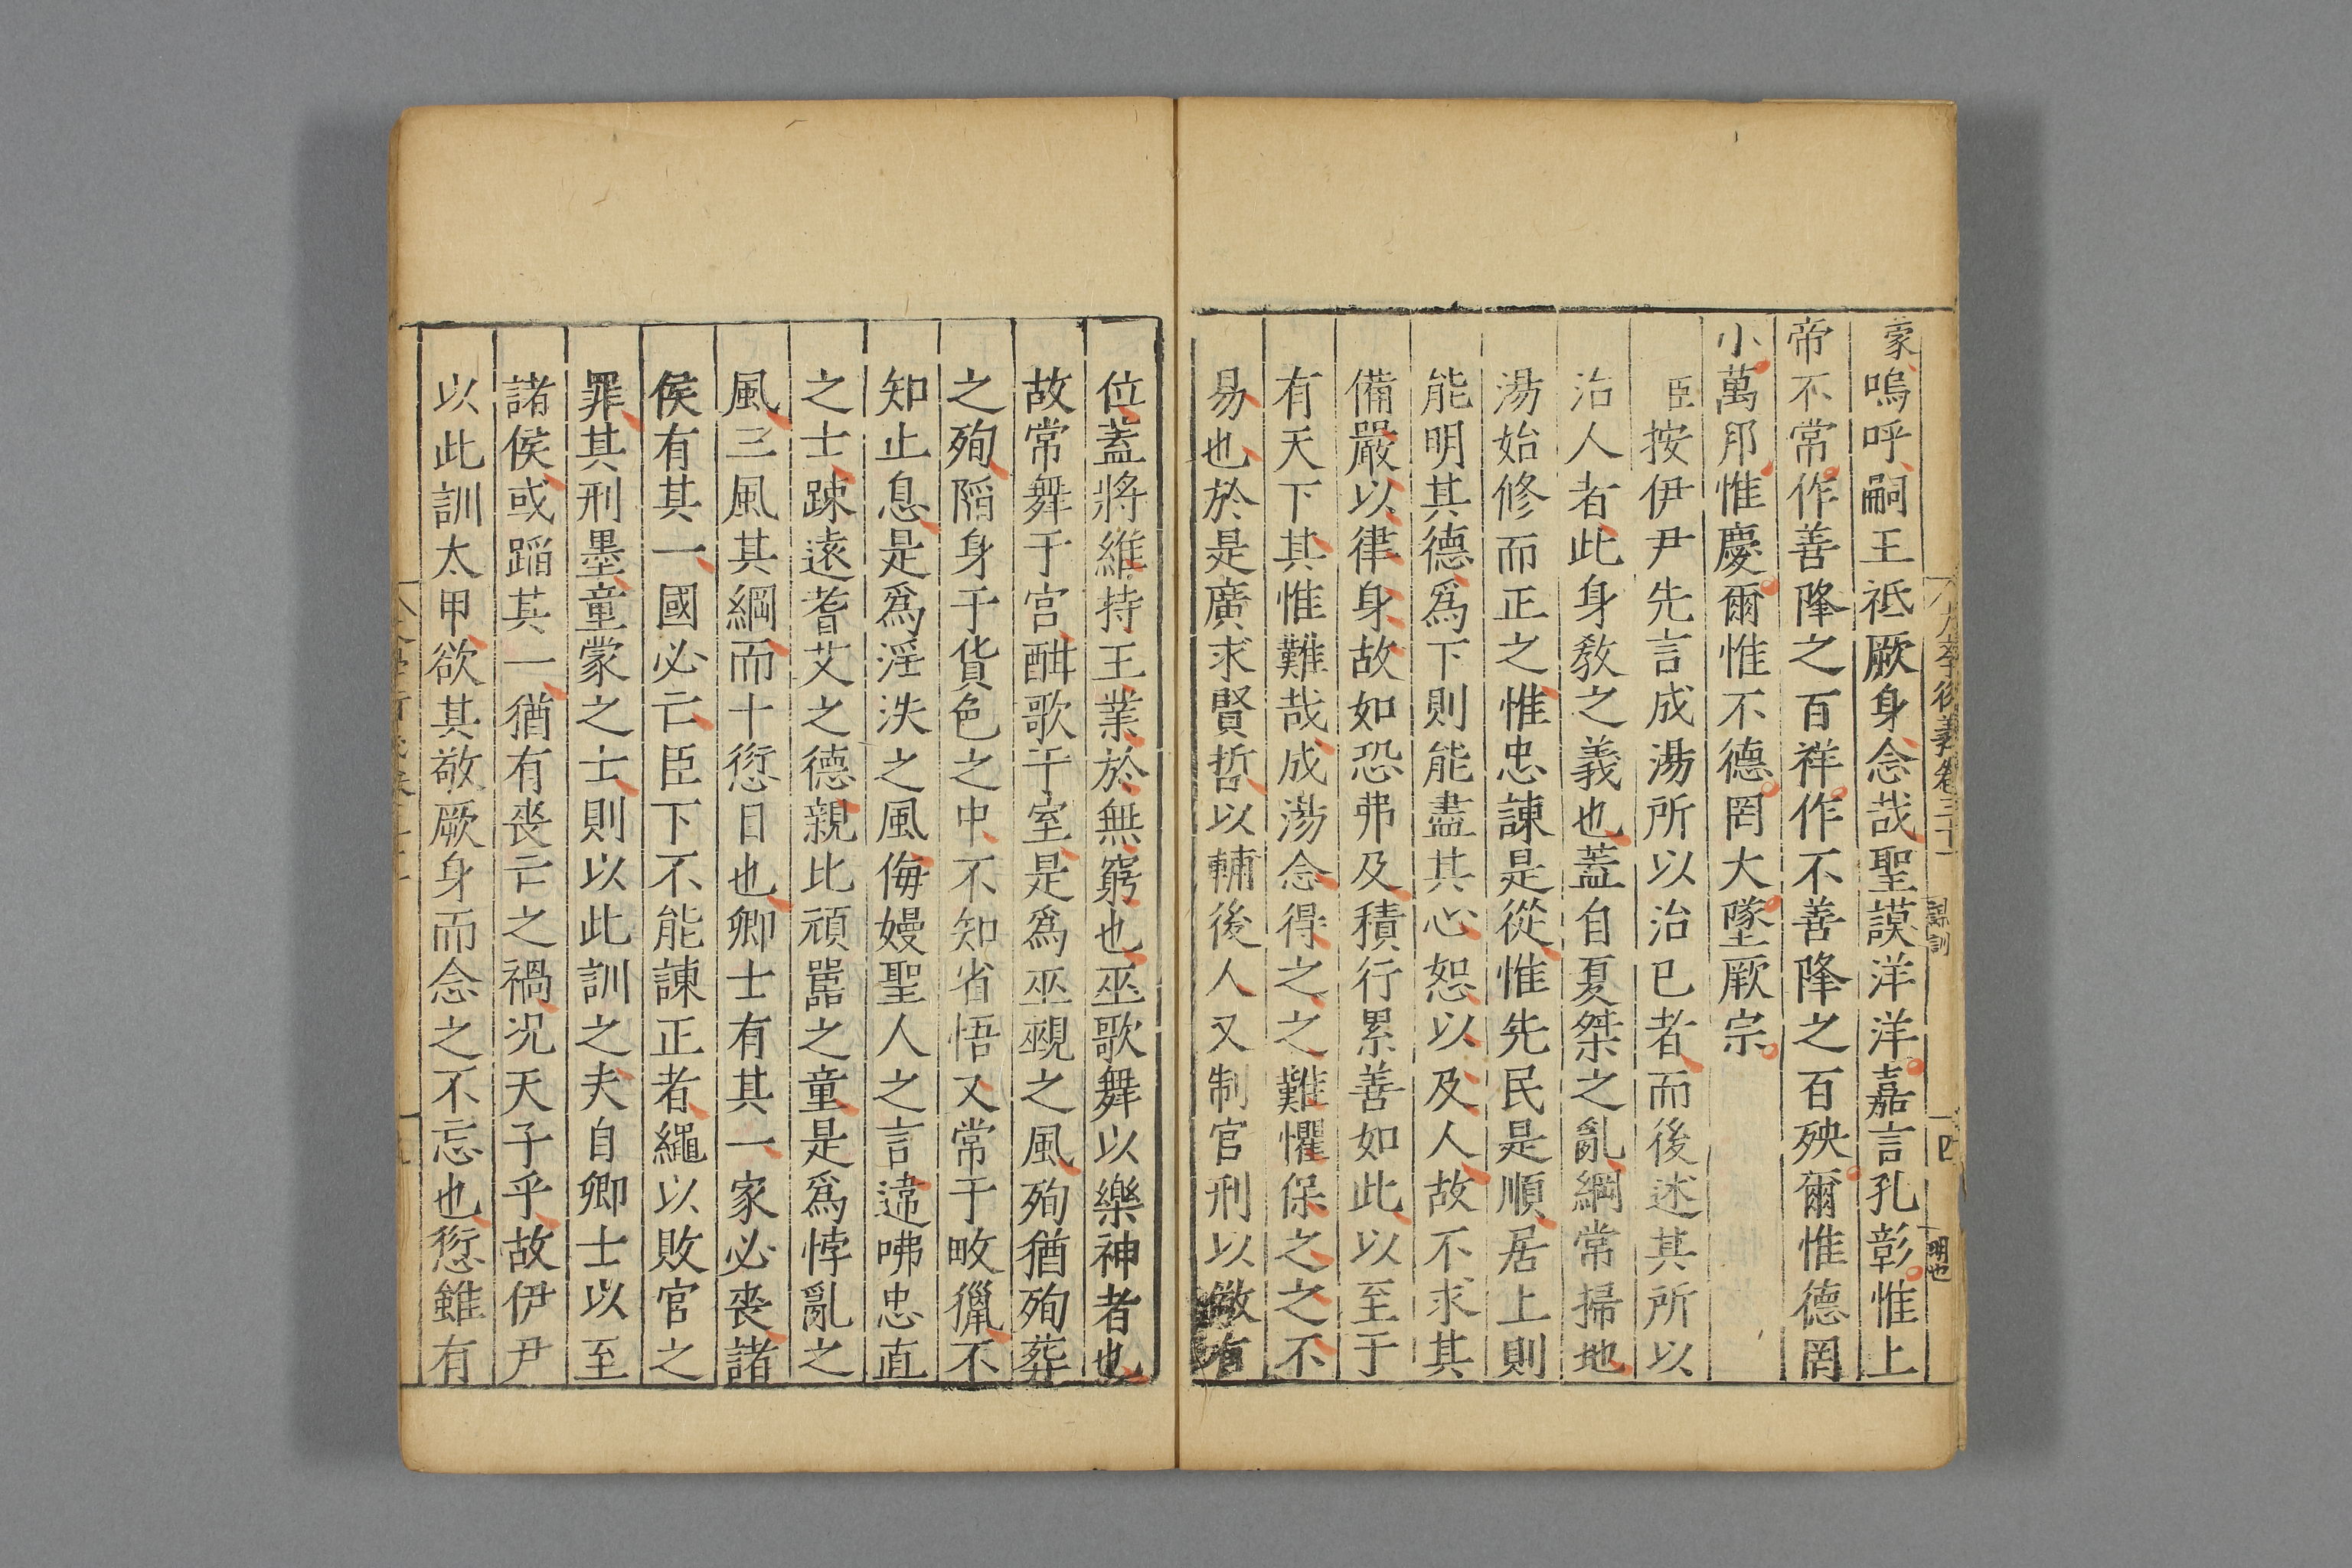 蒙嗚呼嗣王祗厥身念哉聖謨洋洋嘉言孔彰惟上
帝不常作善降之百祥作不善降之百殃爾惟德罔
小萬邦惟慶爾惟不德罔大墜厥宗
臣按伊尹先言成湯所以治已者而後述其所以
治人者此身教之義也蓋自夏桀之亂綱常掃地
湯始修而正之惟忠諫是從惟先民是順居上則
能明其德爲下則能盡其心恕以及人故不求其
備嚴以律身故如恐弗及積行累善如此以至于
有天下其惟難哉成湯念得之之難懼保之之不
易也於是廣求賢哲以輔後人又制官刑以儆有
位蓋將維持王業於無窮也巫歌舞以樂神者也
故常舞于宫酣歌于室是爲巫覡之風殉猶殉葬
之殉䧟身于貨色之中不知省悟又常于畋獵不
知止息是爲淫泆之風侮嫚聖人之言違咈忠直
之士踈遠耆艾之德親比頑嚚之童是爲悖亂之
風三風其綱而十愆目也卿士有其一家必喪諸
侯有其一國必亡臣下不能諫正者繩以敗官之
罪其刑墨童蒙之士則以此訓之夫自卿士以至
諸侯或蹈其一猶有喪亡之禍况天子乎故伊尹
以此訓太甲欲其敬厥身而念之不忘也愆雖有